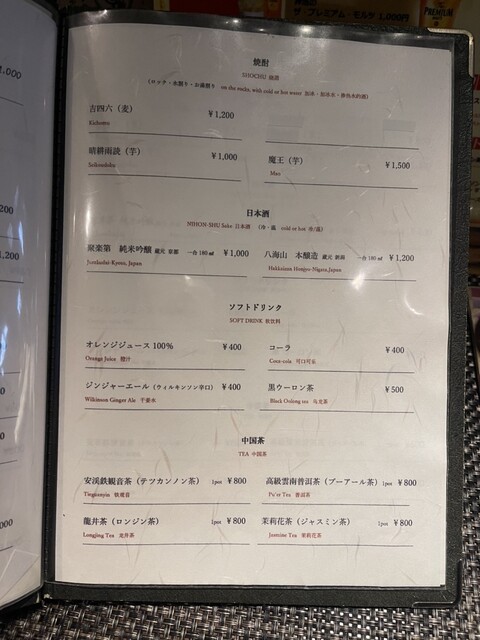 ザ・プレミアム・モルツ 1,000円
PREMIUM
焼酎
SHOCHU 烧酒
吉四六（麦）
¥1,200
晴耕雨読（芋）
¥1,000
魔王（芋）
¥1,500
Mao
日本酒
NIHON-SHU Sake 日本酒 （冷・温 cold or hot 冷/温）
聚楽第 純米吟醸 蔵元 京都 一合 180 ㎖ ¥1,000
Jurakudai-Kyoto, Japan
八海山 本醸造 蔵元 新潟 一合 180 ㎖ ¥1,200
Hakkaisan Honjyo-Nigata, Japan
ソフトドリンク
SOFT DRINK 软饮料
オレンジジュース 100% ¥400
Orange Juice 橙汁
コーラ ¥400
Coca-cola 可口可乐
ジンジャーエール（ウィルキンソン辛口） ¥400
Wilkinson Ginger Ale 干姜水
黒ウーロン茶 ¥500
Black Oolong tea 乌龙茶
中国茶
TEA 中國茶
安渓鉄観音茶（テツカンノン茶） 1pot ¥800
Tieguanyin 铁观音
高級雲南普洱茶（プーアール茶） 1pot ¥800
Pu'er Tea 普洱茶
龍井茶（ロンジン茶） 1pot ¥800
Longjing Tea 龙井茶
茉莉花茶（ジャスミン茶） 1pot ¥800
Jasmine Tea 茉莉花茶